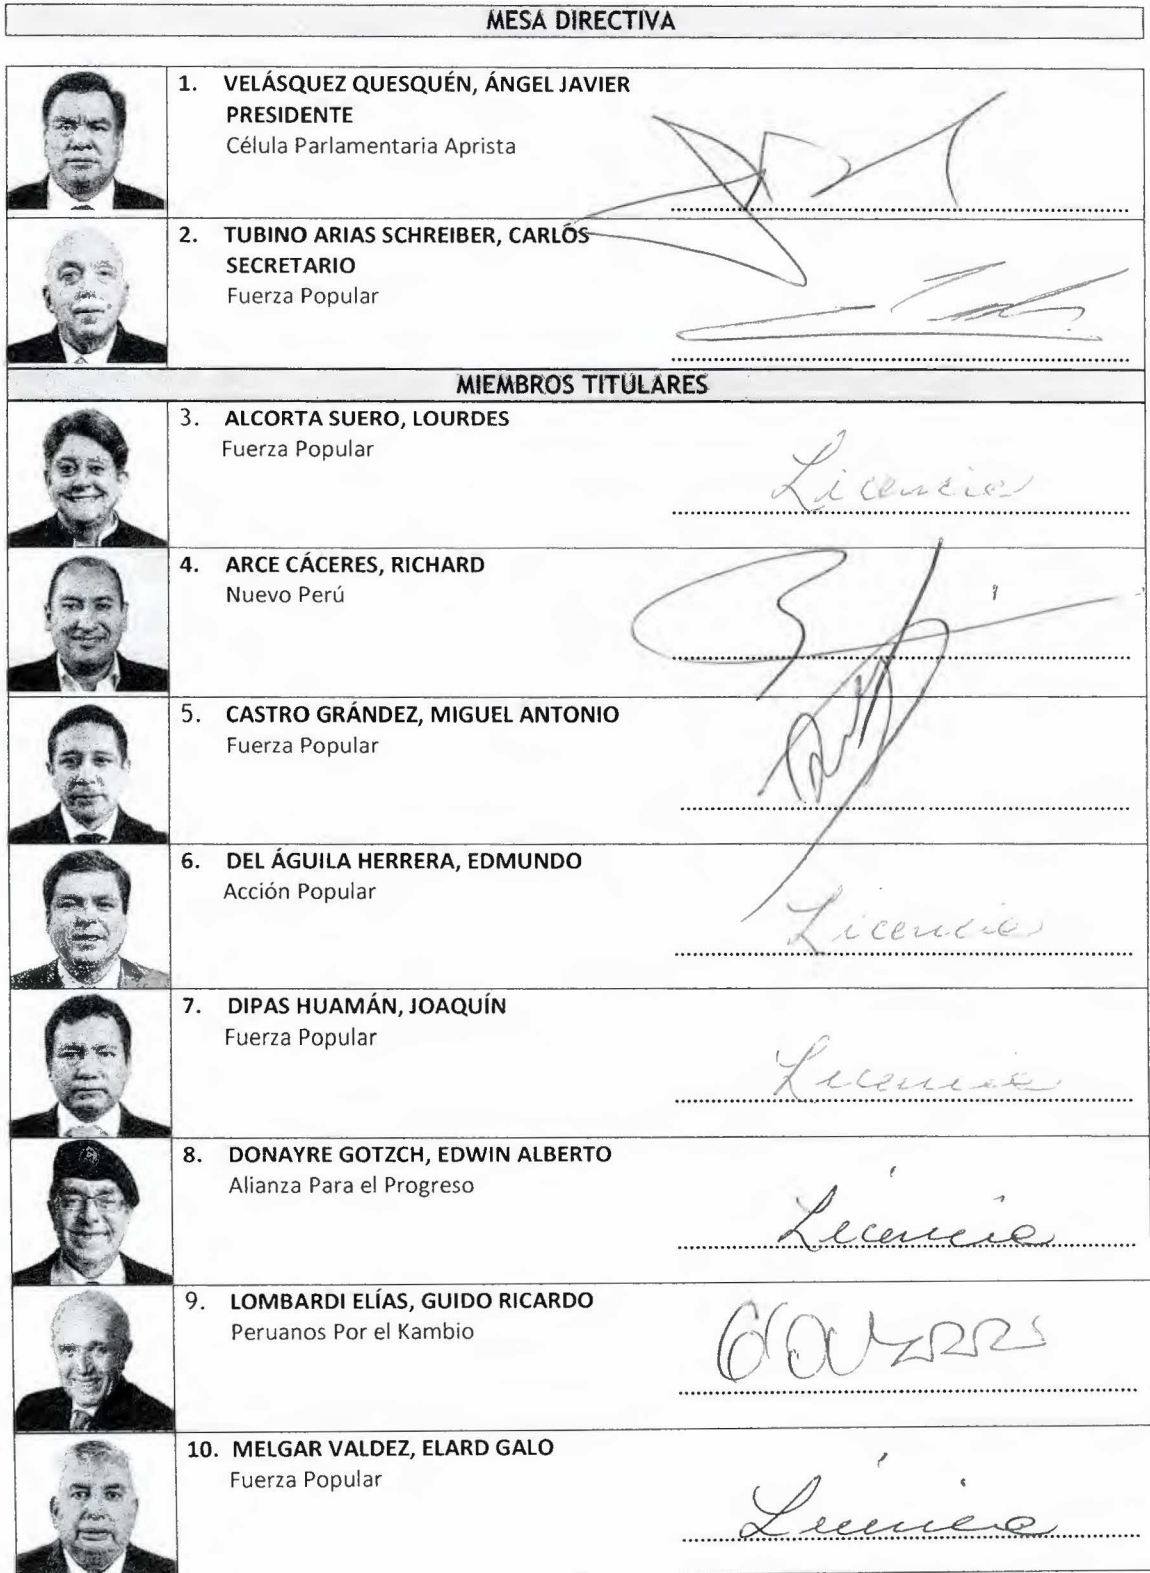 MESA DIRECTIVA
1. VELÁSQUEZ QUESQUÉN, ÁNGEL JAVIER
PRESIDENTE
Célula Parlamentaria Aprista
2. TUBINO ARIAS SCHREIBER, CARLOS
SECRETARIO
Fuerza Popular
MIEMBROS TITULARES
3. ALCORTA SUERO, LOURDES
Fuerza Popular
Licencia
4. ARCE CÁCERES, RICHARD
Nuevo Perú
5. CASTRO GRÁNDEZ, MIGUEL ANTONIO
Fuerza Popular
6. DEL ÁGUILA HERRERA, EDMUNDO
Acción Popular
Licencia
7. DIPAS HUAMÁN, JOAQUÍN
Fuerza Popular
Licencia
8. DONAYRE GOTZCH, EDWIN ALBERTO
Alianza Para el Progreso
Licencia
9. LOMBARDI ELÍAS, GUIDO RICARDO
Peruanos Por el Kambio
10. MELGAR VALDEZ, ELARD GALO
Fuerza Popular
Licencia